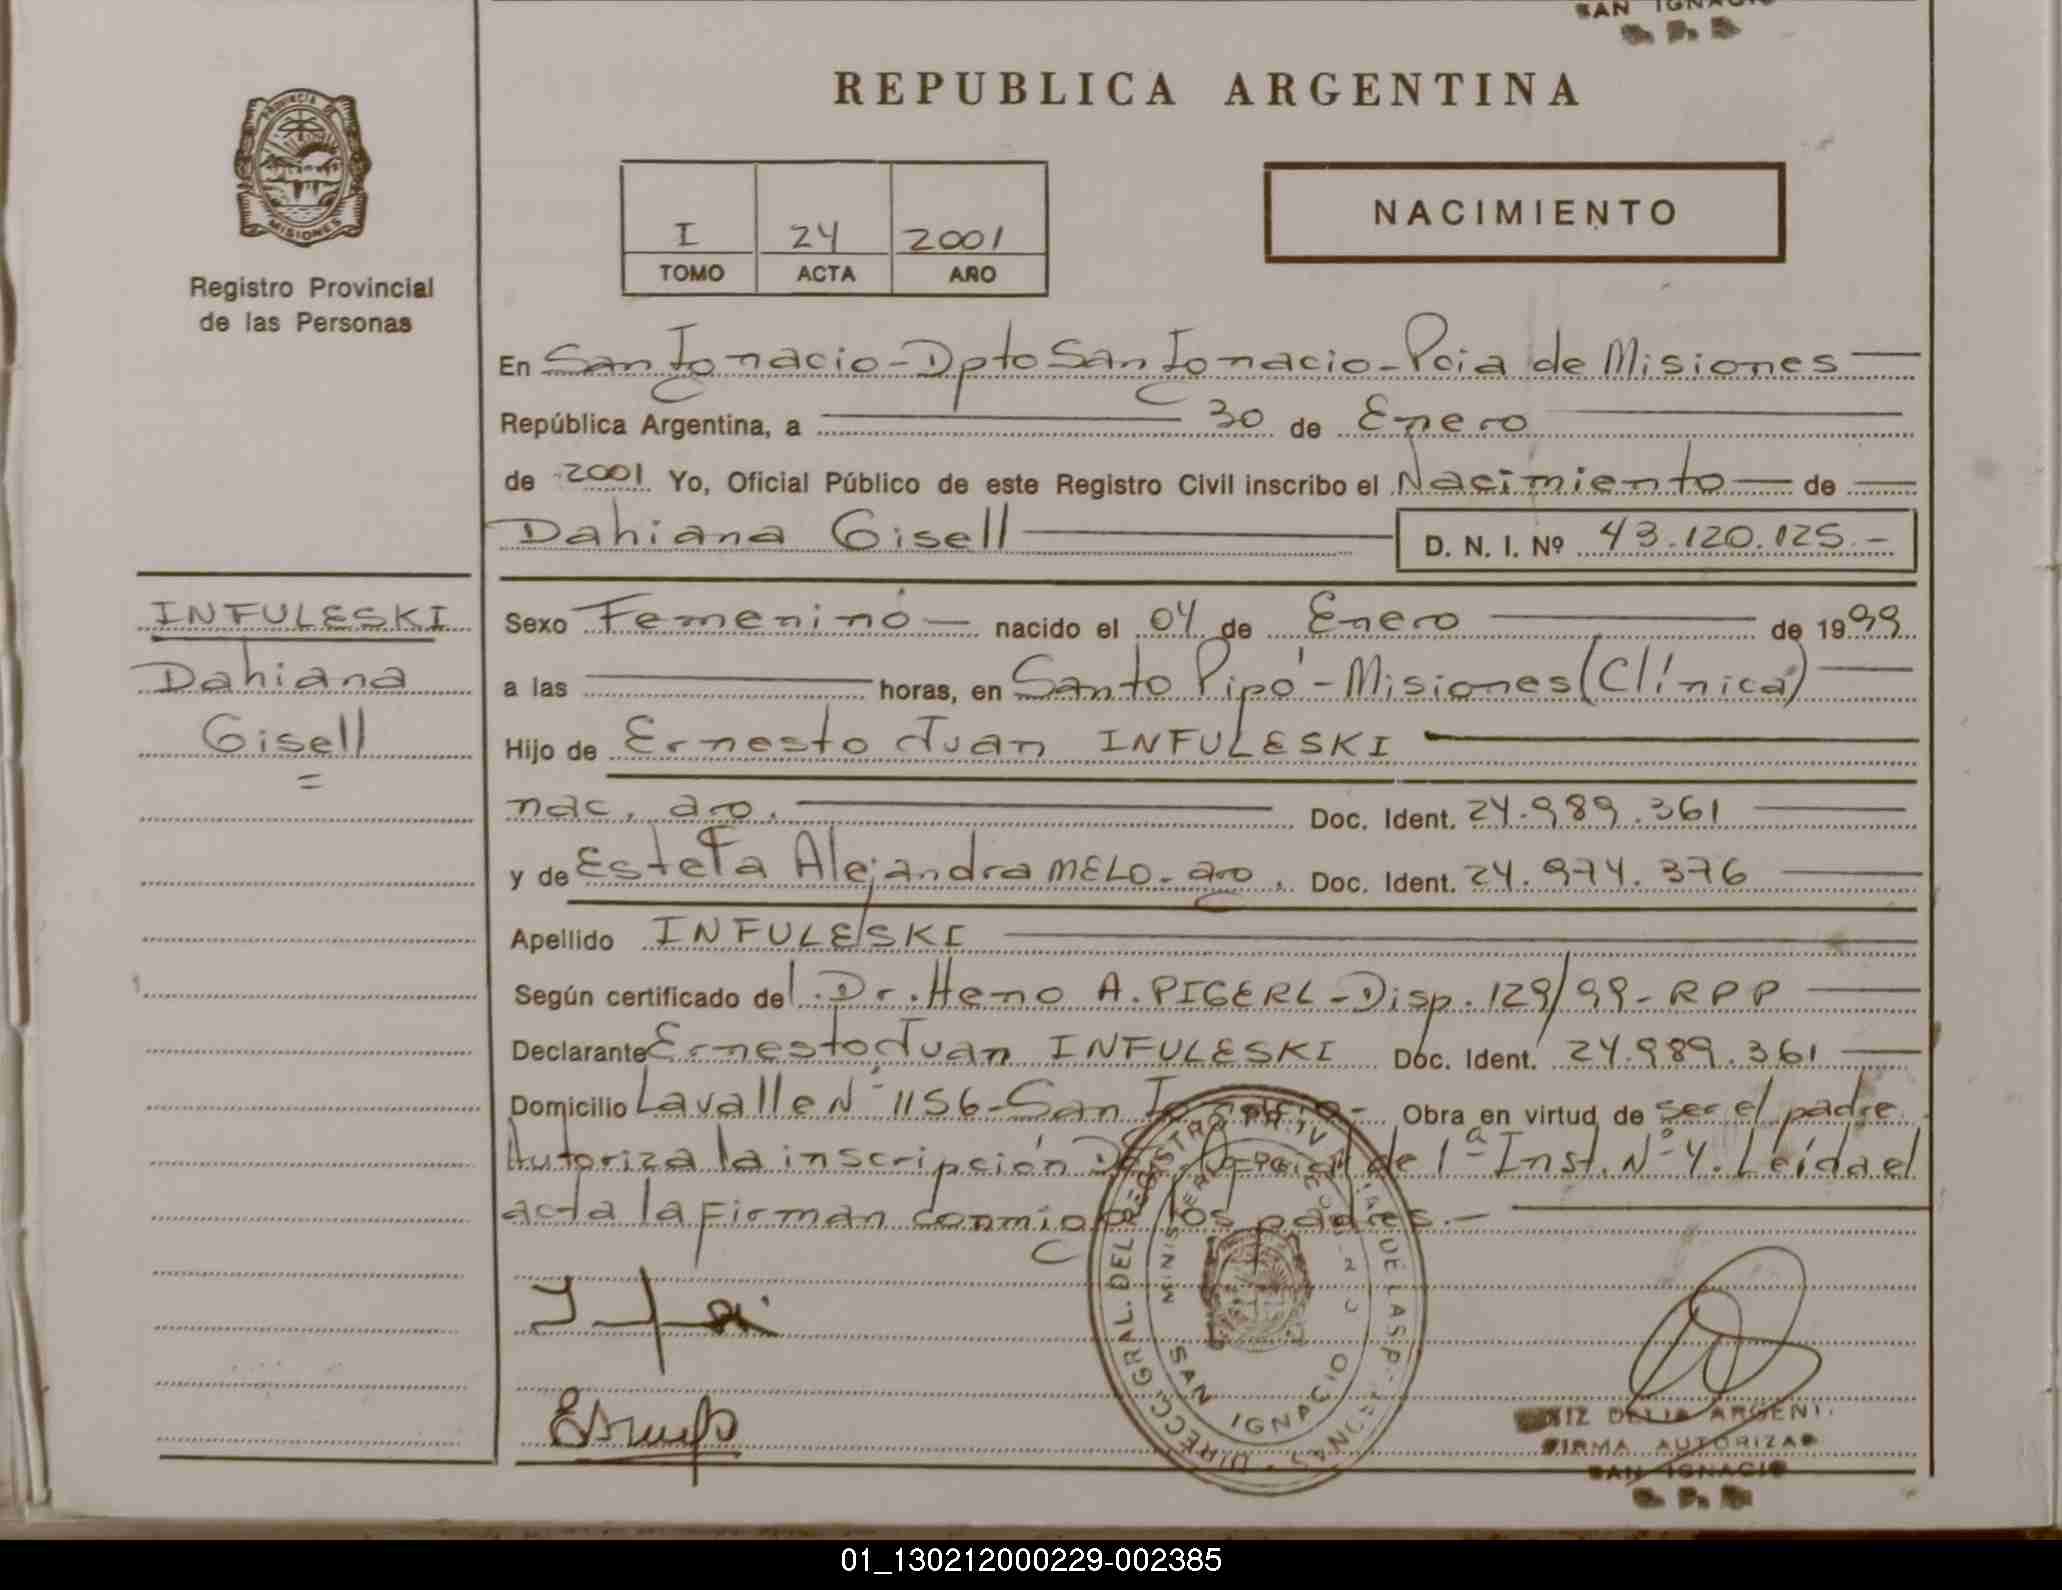 SAN IGNACIO
REPUBLICA ARGENTINA
PROVINCIA DE
MISIONES
Registro Provincial
de las Personas
I 24 2001
TOMO ACTA AÑO
NACIMIENTO
En San Ignacio - Dpto San Ignacio - Pcia de Misiones
República Argentina, a 30 de Enero
de 2001 Yo, Oficial Público de este Registro Civil inscribo el Nacimiento de
Dahiana Gisell D. N. I. Nº 43.120.125.-
INFULESKI
Dahiana
Gisell
Sexo Femenino nacido el 04 de Enero de 1999
a las horas, en Santo Pipó - Misiones (Clínica)
Hijo de Ernesto Juan INFULESKI
nac. arg. Doc. Ident. 24.989.361
y de Estela Alejandra MELO - arg. Doc. Ident. 24.974.376
Apellido INFULESKI
Según certificado del Dr. Heno A. PIGERL - Disp. 129/99 - RPP
Declarante Ernesto Juan INFULESKI Doc. Ident. 24.989.361
Domicilio Lavalle Nº 1156 - San Ignacio - Obra en virtud de ser el padre
Autoriza la inscripción de 1ª Inst. Nº 4. Leída el
acta la firman conmigo los padres.-
DIRECC. GRAL. DEL REGISTRO PROV. DE LAS PERSONAS
SAN IGNACIO
DELIA ARGENT
FIRMA AUTORIZAD
SAN IGNACIO
01_130212000229-002385